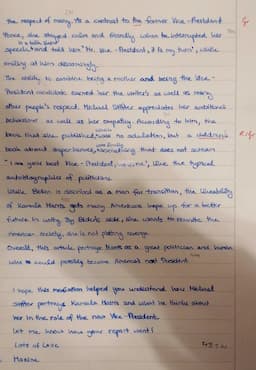 the respect of many. As a contrast to the former Vice-President
Pence, she stayed calm and friendly when he interrupted her
in a talk show
speech and told him "Mr. Vice-President, it is my turn", while
smiling at him
The ability to combine being a mother and being the Vice-
President candidate earned her the writer's as well as many
other people's respect. Melinel appreciates her ambitious
behaviour as well as her empathy. According to him, the
book that she published was no
book about experiences, something that does not scream
"I am your best Vice-President, me", like the typical
autobiographies of politicians.
While Biden is described as a man for transition, the likeability
of Kamala Harris gets many Americans hope up for a better
future in unity. By Biden's side, she wants to reunite the
American society, she is not plotting revenge.
Overall, this article portrays Harris as a great politician and human
who could possibly become America's next President.
I hope this mediation helped you understand how Melinel
portrays Kamala Harris and what he thinks about
her in the role of the new Vice-President.
Let me know how your report went!
Lots of Love
Maxine